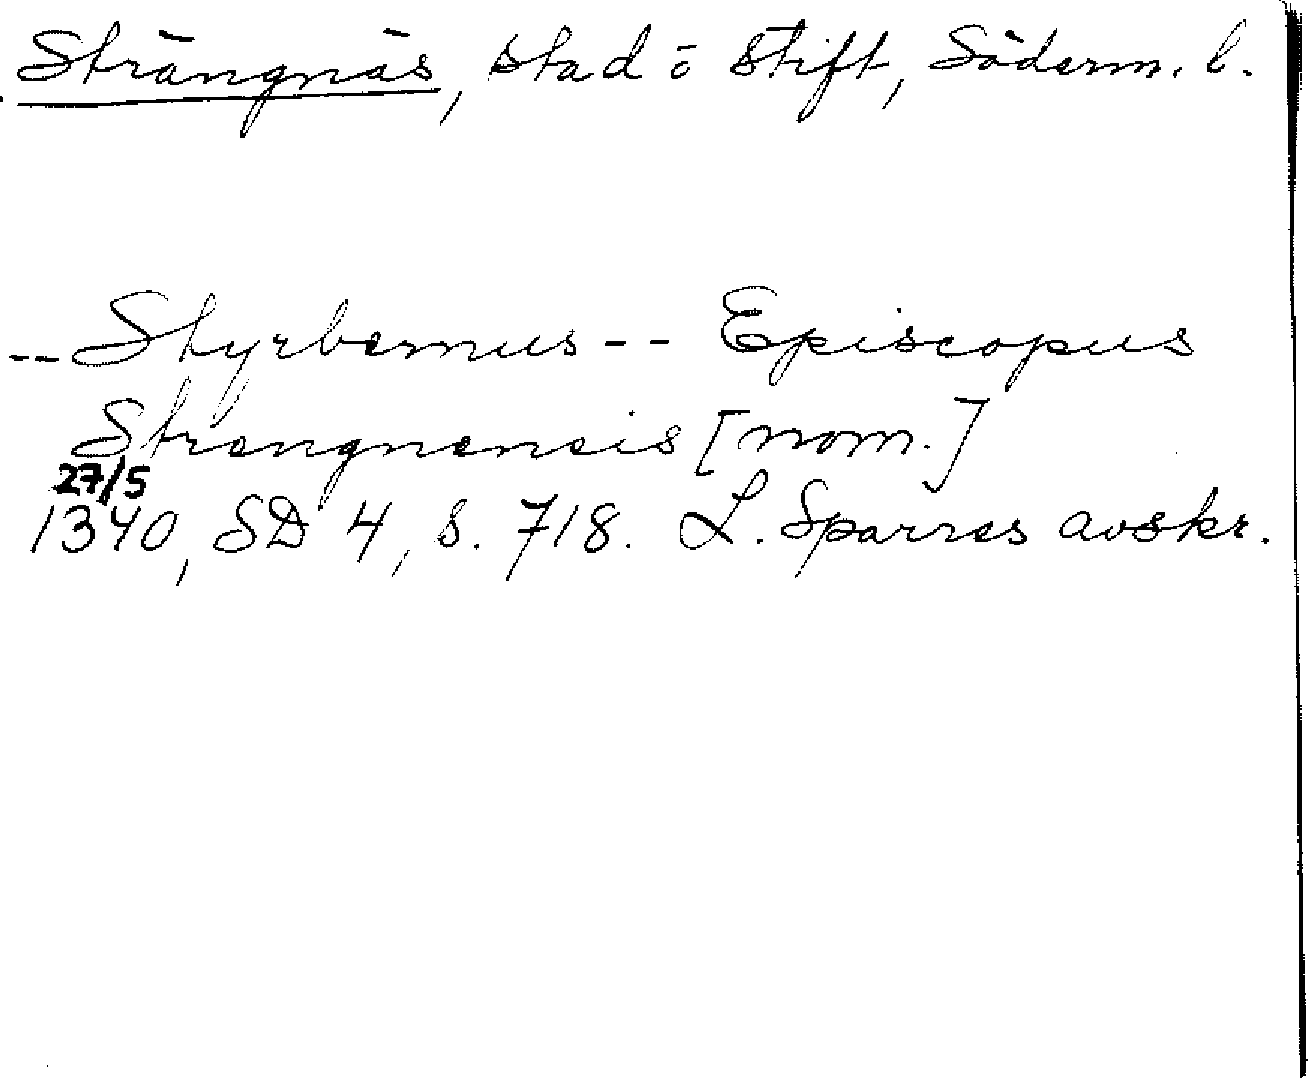 Strängnäs, stad o stift, Söderm. l.
-- Styrbernus -- Episcopus
Strengnensis [nom.]
27/5
1340, SD 4, s. 718. L. Sparres avskr.